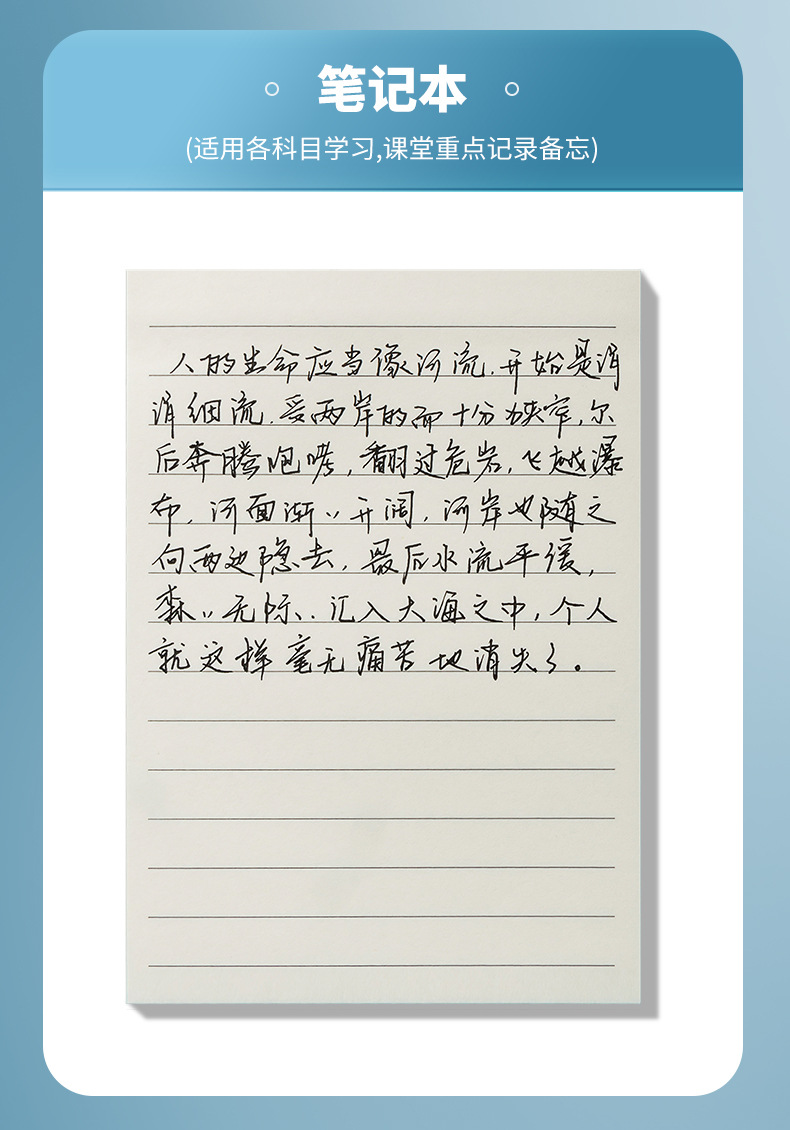 笔记本
(适用各科目学习,课堂重点记录备忘)
人的生命应当像河流，开始是涓
涓细流，受两岸的而十分狭窄，尔
后奔腾咆哮，翻过危岩，飞越瀑
布，河面渐〃开阔，河岸也随之
向两边隐去，最后水流平缓，
森〃无际，汇入大海之中，个人
就这样毫无痛苦地消失了。